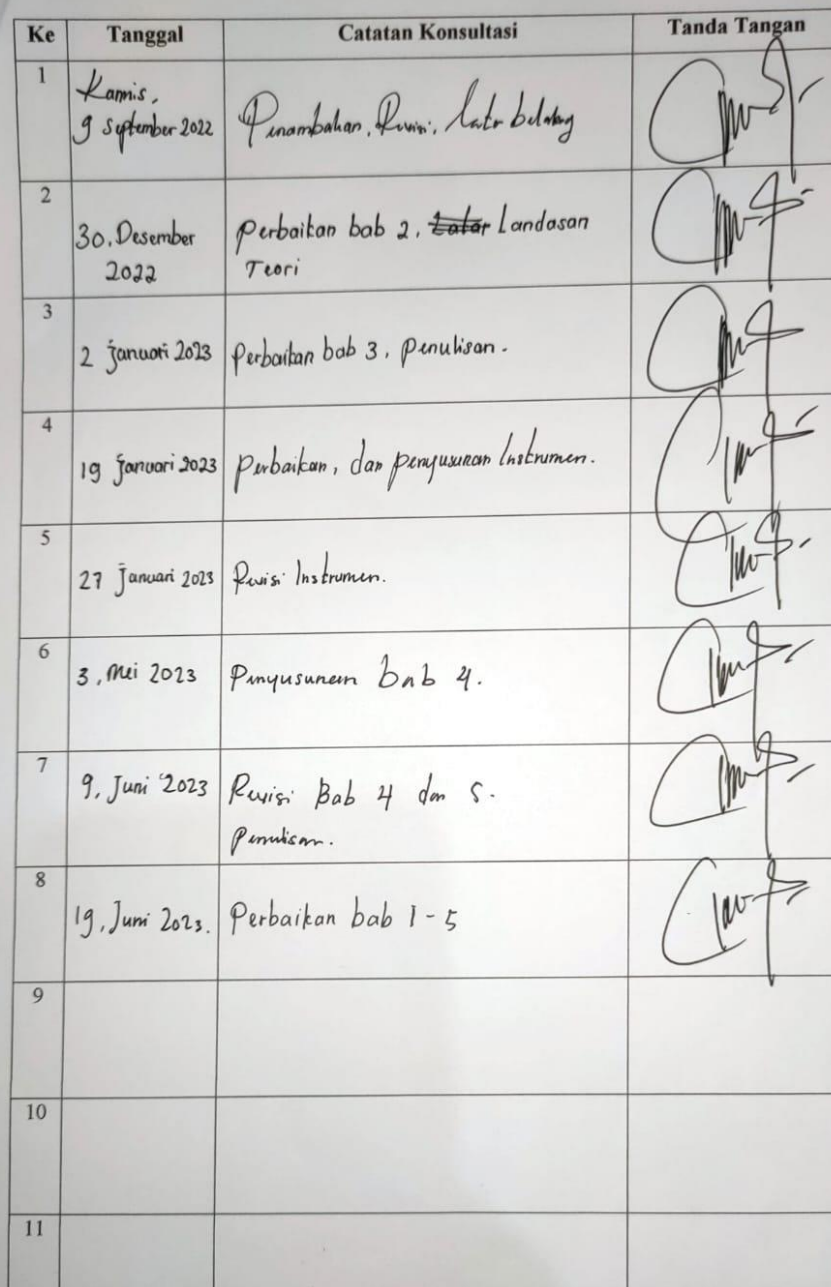 Ke Tanggal Catatan Konsultasi Tanda Tangan
1
Kamis,
9 September 2022 Penambahan, Revisi, latar belakang
2
30, Desember perbaikan bab 2, Latar Landasan
2022 Teori
3
2 januari 2023 Perbaikan bab 3, penulisan.
4
19 januari 2023 perbaikan, dan penyusunan Instrumen.
5
27 januari 2023 Revisi Instrumen.
6
3, mei 2023 Penyusunan bab 4.
7
9, Juni 2023 Revisi Bab 4 dan 5.
penulisan.
8
19, Juni 2023. Perbaikan bab 1 - 5
9
10
11